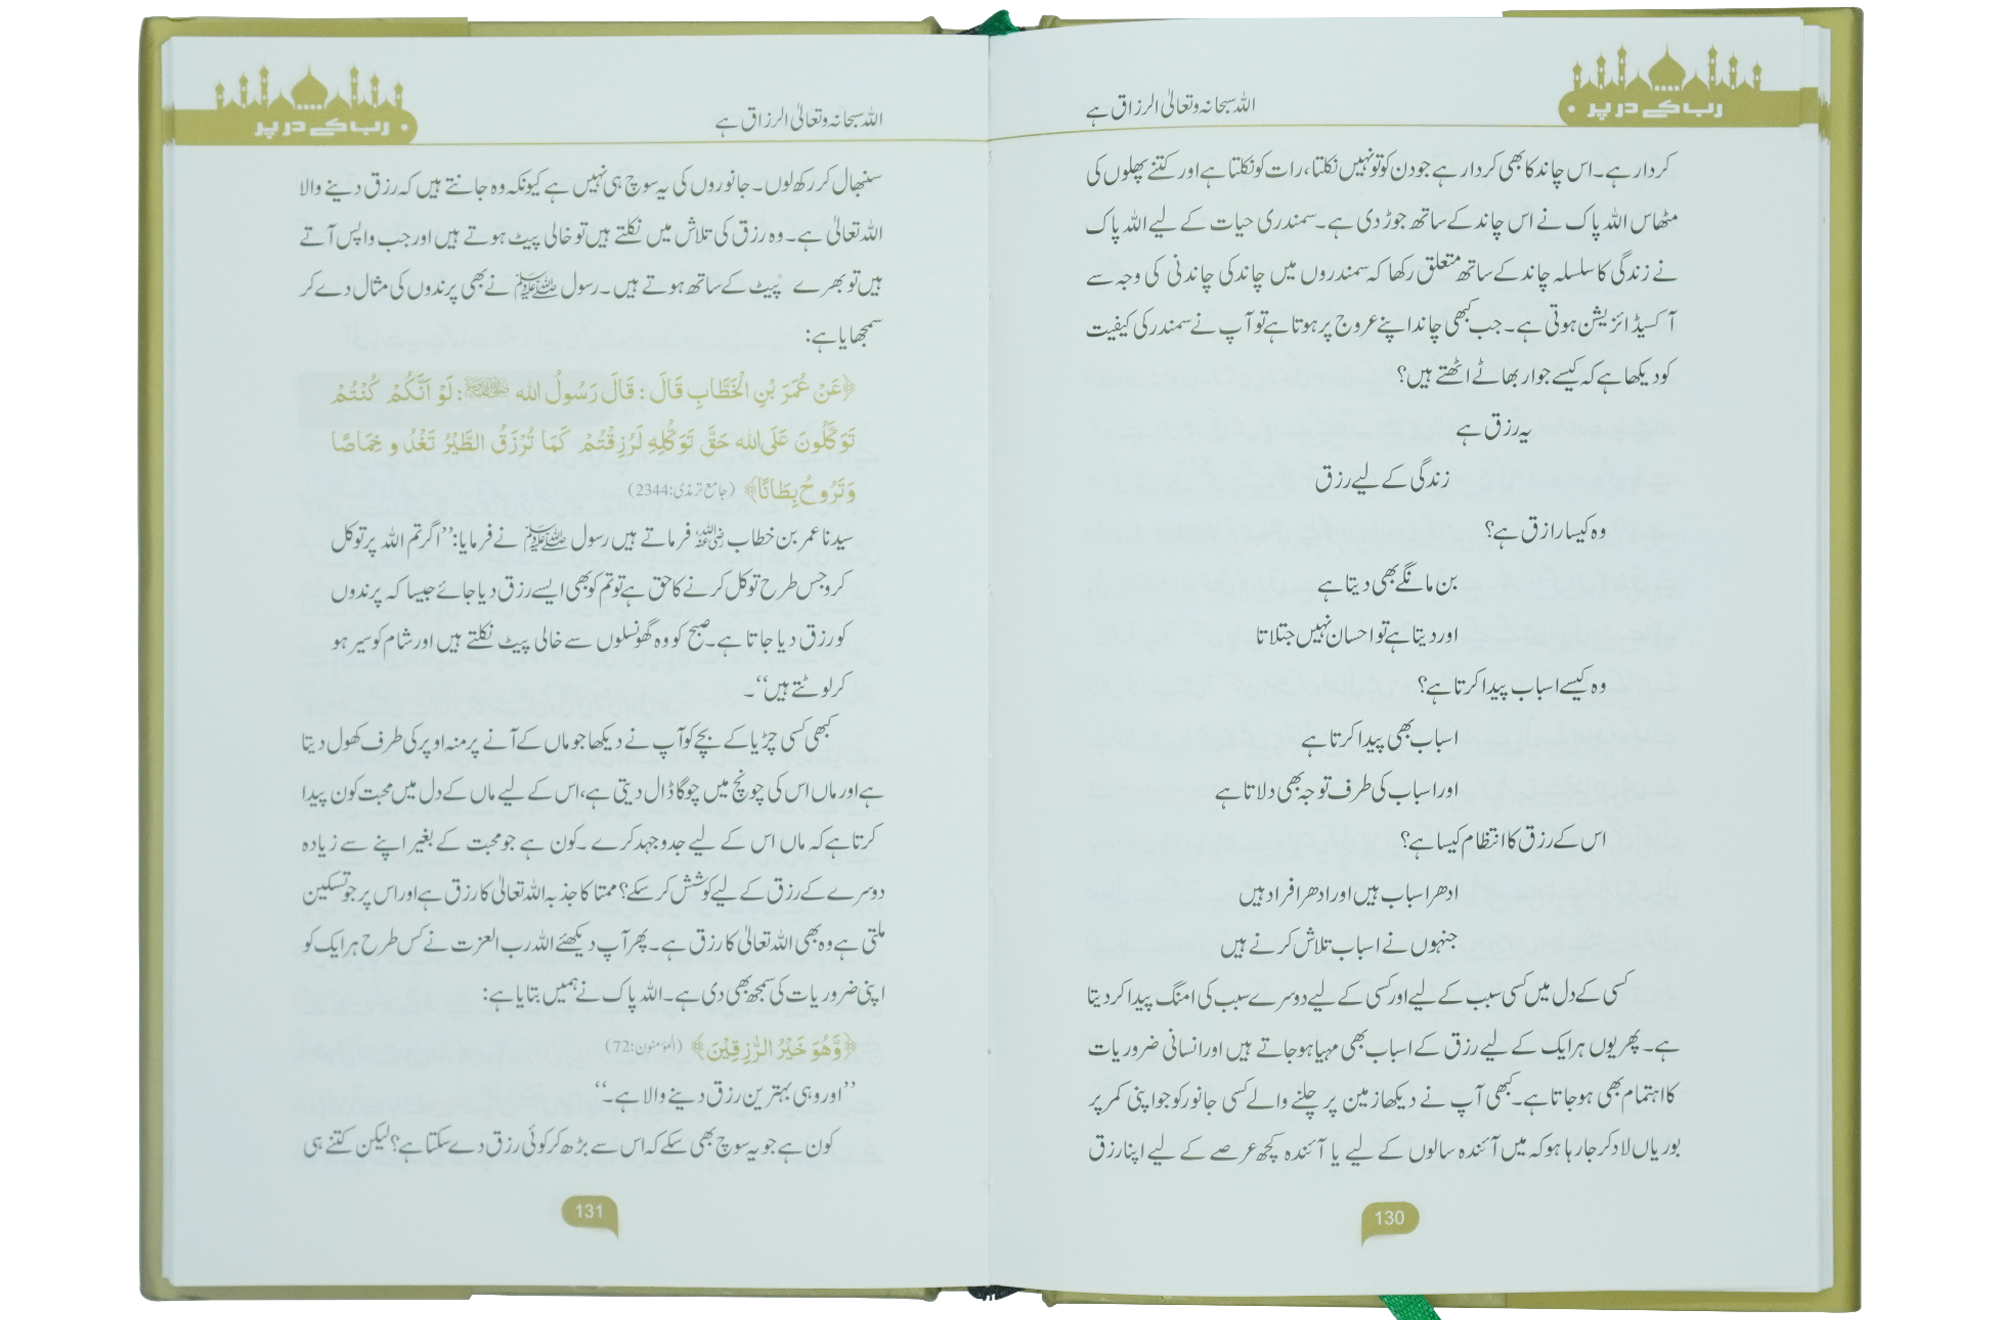 رب کے در پر
اللہ سبحانہ وتعالیٰ الرزاق ہے
کردار ہے۔ اس چاند کا بھی کردار ہے جو دن کو تو نہیں نکلتا، رات کو نکلتا ہے اور کتنے پھلوں کی
مٹھاس اللہ پاک نے اس چاند کے ساتھ جوڑ دی ہے۔ سمندری حیات کے لیے اللہ پاک
نے زندگی کا سلسلہ چاند کے ساتھ متعلق رکھا کہ سمندروں میں چاند کی چاندنی کی وجہ سے
آکسیڈائزیشن ہوتی ہے۔ جب کبھی چاند اپنے عروج پر ہوتا ہے تو آپ نے سمندر کی کیفیت
کو دیکھا ہے کہ کیسے جوار بھاٹے اٹھتے ہیں؟
یہ رزق ہے
زندگی کے لیے رزق
وہ کیسا رازق ہے؟
بن مانگے بھی دیتا ہے
اور دیتا ہے تو احسان نہیں جتلاتا
وہ کیسے اسباب پیدا کرتا ہے؟
اسباب بھی پیدا کرتا ہے
اور اسباب کی طرف توجہ بھی دلاتا ہے
اس کے رزق کا انتظام کیسا ہے؟
ادھر اسباب ہیں اور ادھر افراد ہیں
جنہوں نے اسباب تلاش کرنے ہیں
کسی کے دل میں کسی سبب کے لیے اور کسی کے لیے دوسرے سبب کی امنگ پیدا کر دیتا
ہے۔ پھر یوں ہر ایک کے لیے رزق کے اسباب بھی مہیا ہو جاتے ہیں اور انسانی ضروریات
کا اہتمام بھی ہو جاتا ہے۔ کبھی آپ نے دیکھا زمین پر چلنے والے کسی جانور کو جو اپنی کمر پر
بوریاں لاد کر جا رہا ہو کہ میں آئندہ سالوں کے لیے یا آئندہ کچھ عرصے کے لیے اپنا رزق
130
رب کے در پر
اللہ سبحانہ وتعالیٰ الرزاق ہے
سنبھال کر رکھ لوں۔ جانوروں کی یہ سوچ ہی نہیں ہے کیونکہ وہ جانتے ہیں کہ رزق دینے والا
اللہ تعالیٰ ہے۔ وہ رزق کی تلاش میں نکلتے ہیں تو خالی پیٹ ہوتے ہیں اور جب واپس آتے
ہیں تو بھرے پیٹ کے ساتھ ہوتے ہیں۔ رسول ﷺ نے بھی پرندوں کی مثال دے کر
سمجھایا ہے:
﴿عَنْ عُمَرَ بْنِ الْخَطَّابِ قَالَ: قَالَ رَسُولُ الله ﷺ: لَوْ أَنَّكُمْ كُنْتُمْ
تَوَكَّلُونَ عَلَى الله حَقَّ تَوَكُّلِهِ لَرُزِقْتُمْ كَمَا تُرْزَقُ الطَّيْرُ تَغْدُ و خِمَاصًا
وَتَرُوحُ بِطَانًا﴾ (جامع ترمذی:2344)
سیدنا عمر بن خطاب رضی اللہ عنہ فرماتے ہیں رسول ﷺ نے فرمایا: ”اگر تم اللہ پر توکل
کرو جس طرح توکل کرنے کا حق ہے تو تم کو بھی ایسے رزق دیا جائے جیسا کہ پرندوں
کو رزق دیا جاتا ہے۔ صبح کو وہ گھونسلوں سے خالی پیٹ نکلتے ہیں اور شام کو سیر ہو
کر لوٹتے ہیں“۔
کبھی کسی چڑیا کے بچے کو آپ نے دیکھا جو ماں کے آنے پر منہ اوپر کی طرف کھول دیتا
ہے اور ماں اس کی چونچ میں چوگا ڈال دیتی ہے، اس کے لیے ماں کے دل میں محبت کون پیدا
کرتا ہے کہ ماں اس کے لیے جدوجہد کرے۔ کون ہے جو محبت کے بغیر اپنے سے زیادہ
دوسرے کے رزق کے لیے کوشش کر سکے؟ ممتا کا جذبہ اللہ تعالیٰ کا رزق ہے اور اس پر جو تسکین
ملتی ہے وہ بھی اللہ تعالیٰ کا رزق ہے۔ پھر آپ دیکھئے اللہ رب العزت نے کس طرح ہر ایک کو
اپنی ضروریات کی سمجھ بھی دی ہے۔ اللہ پاک نے ہمیں بتایا ہے:
﴿وَّهُوَ خَيْرُ الرّٰزِقِيْنَ﴾ (المؤمنون:72)
”اور وہی بہترین رزق دینے والا ہے۔“
کون ہے جو یہ سوچ بھی سکے کہ اس سے بڑھ کر کوئی رزق دے سکتا ہے؟ لیکن کتنے ہی
131